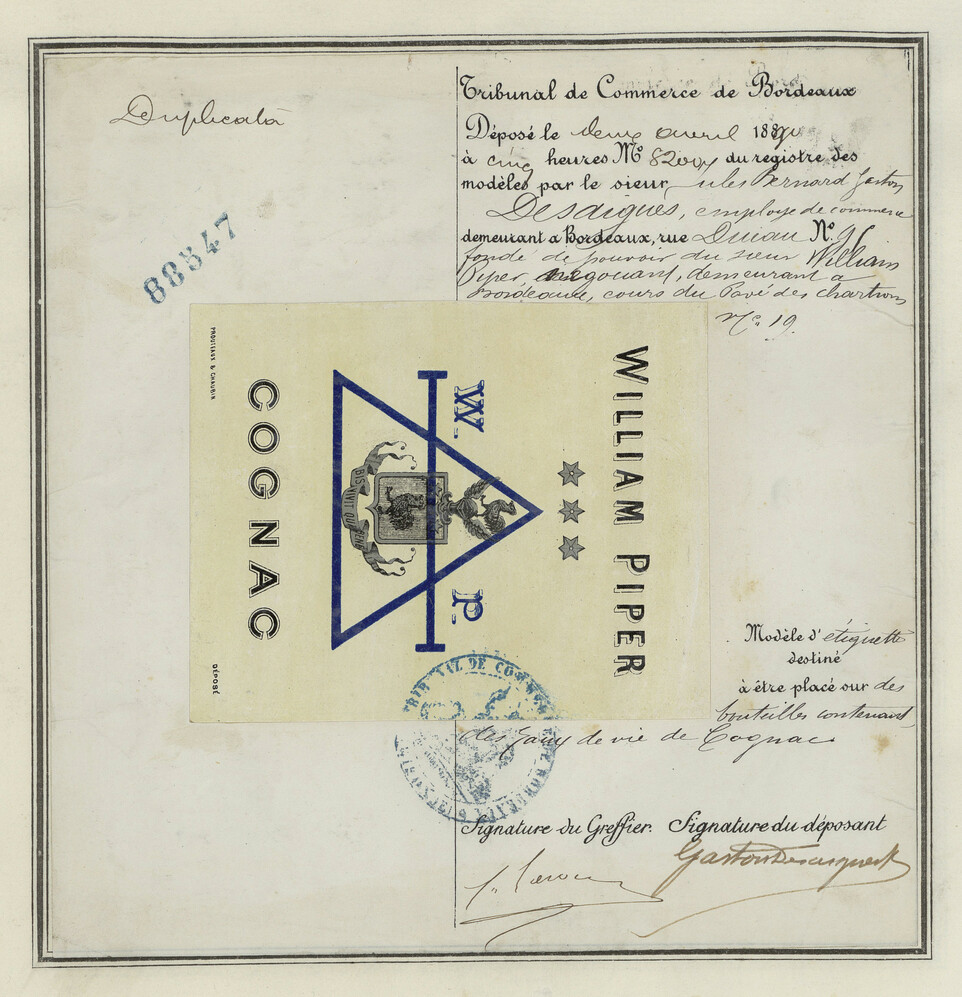 Duplicata
88547
Tribunal de Commerce de Bordeaux
Déposé le deux avril 1890
à cinq heures No du registre des
modèles par le sieur Jules Bernard Gaston
Desaigues, employé de commerce
demeurant à Bordeaux, rue No
fondé de pouvoir du sieur William
Piper, négociant, demeurant à
Bordeaux, cours du Pavé des Chartrons
No 19.
WILLIAM PIPER
W. P.
COGNAC
PROUTEAUX & CHAUBIN
DÉPOSÉ
Modèle d'étiquette
destiné
à être placé sur des
bouteilles contenant
des Eaux de vie de Cognac
TRIBUNAL DE COMMERCE
Signature du Greffier. Signature du déposant